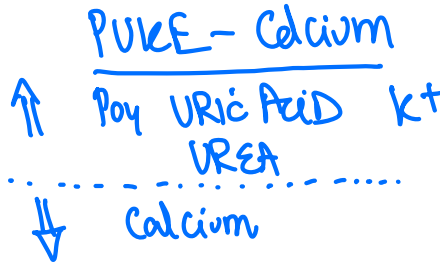 PUKE - Calcium
⇑ Poy URic AciD K+
UREA
⇓ Calcium